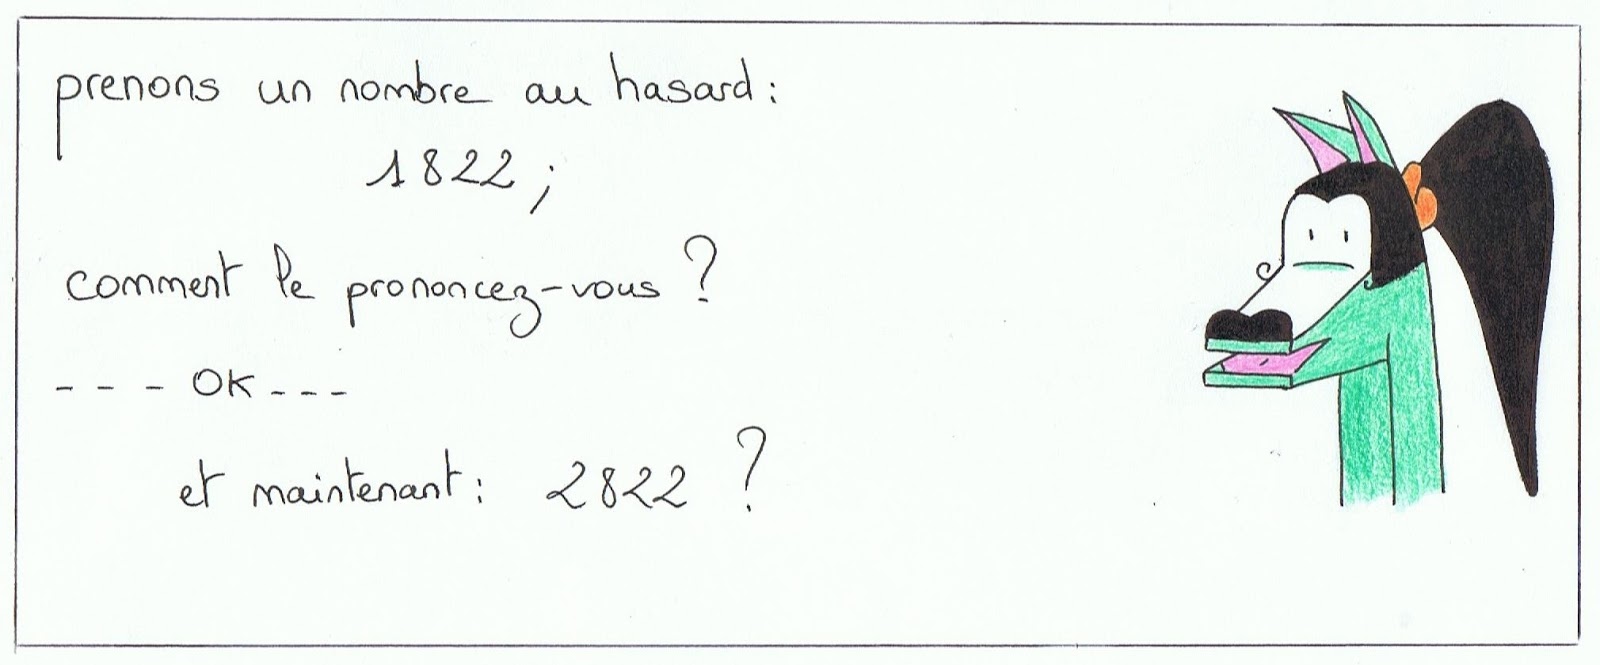 prenons un nombre au hasard :
1822 ;
comment le prononcez-vous ?
- - - OK - - -
et maintenant : 2822 ?